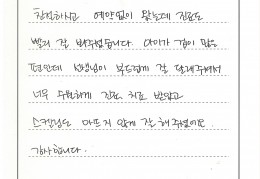 친절하시고 예약없이 왔는데 진료도
빨리 잘 봐주셨습니다. 아이가 겁이 많은
편인데 선생님이 부드럽게 잘 달래주셔서
너무 수월하게 진료, 치료 받았고
스켈링도 아프지 않게 잘 해주셨어요.
감사합니다.